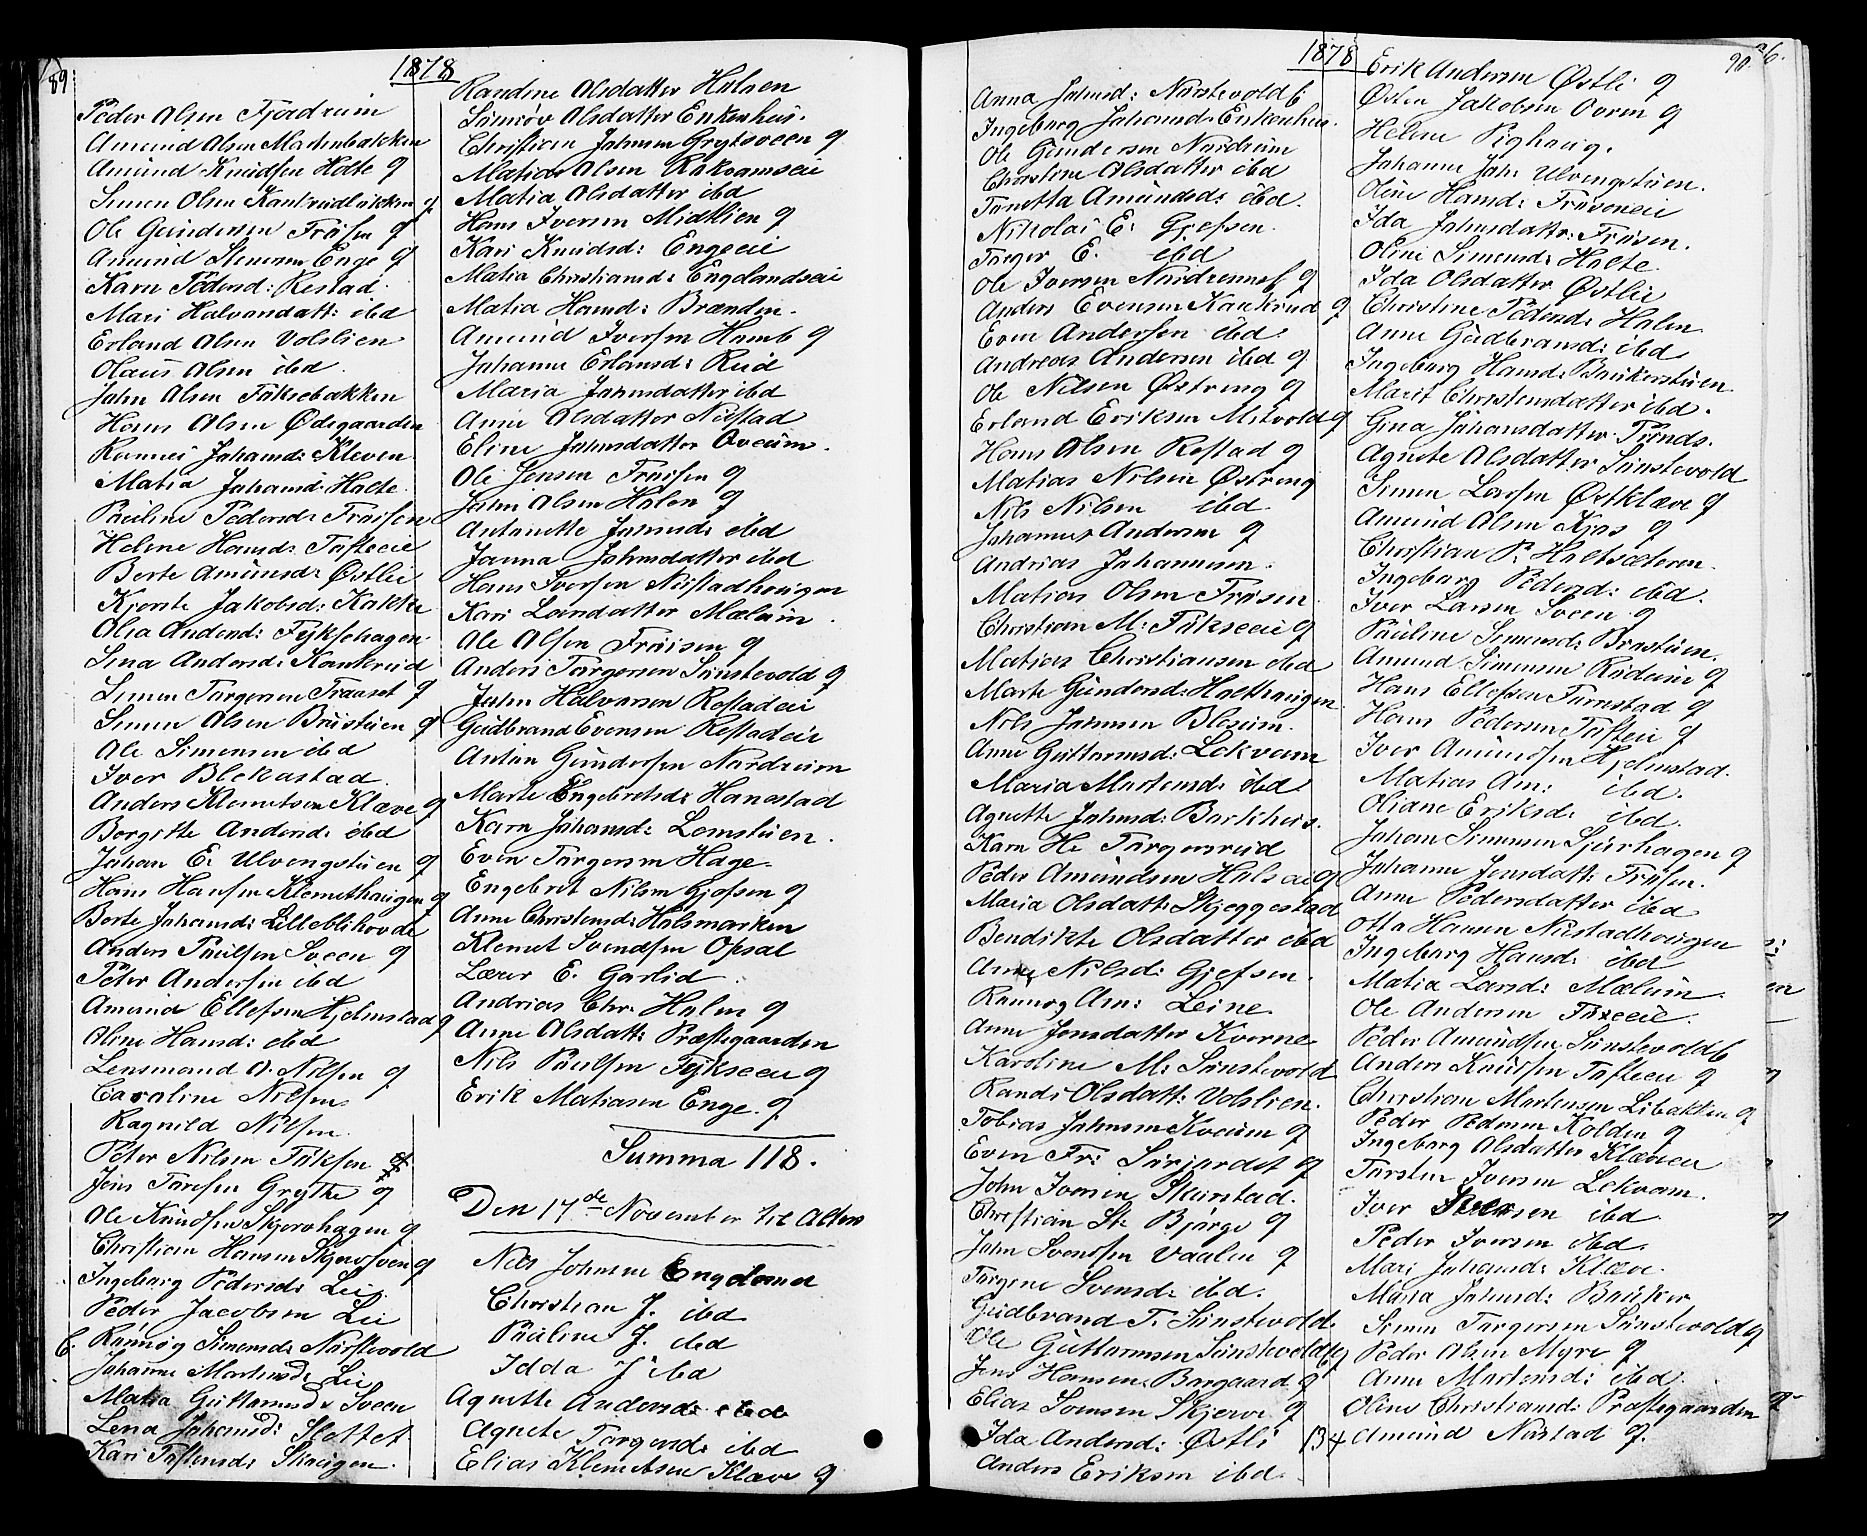 89
1878
Peder Olsen Fjødrum
Amund Olsen Machinbakken
Amund Knudsen Holte q
Simen Olsen Kankrudløkken q
Ole Gundersen Frøisen q
Amund Stenersen Enge q
Karn Pedersd: Restad
Mari Halvarsdatt: ibd
Erland Olsen Volslien
Olaus Olsen ibd
John Olsen Fiksebakken
Hans Olsen Ødegaarden
Rønnei Johansd: Kleven
Matia Johansd: Holte
Pauline Pedersd: Frøisen
Helene Hansd: Tøfteeie
Berte Amunsd: Østlie
Kjerste Jakobsd: Kakke
Olia Andersd: Fykschagen
Sina Andersd: Kankrud
Simen Torgersen Traaset q
Simen Olsen Brustuen q
Ole Simensen ibd
Iver Blekastad
Anders Klemetsen Klæve q
Borgitte Andersd: ibd
Johan E: Ulvengstuen q
Hans Hansen Klemethaugen q
Berte Johansd: Lilleblihovde
Anders Paulsen Sveen q
Peter Andersen ibd
Amund Ellefsen Hjelmstad q
Oline Hansd: ibd
Lensmand O. Nilsen q
Caroline Nilsen
Ragnild Nilsen
Peter Nilsen Fiksen q
Jens Toresen Grythe q
Ole Knudsen Skjervhagen q
Christian Hansen Skjervsveen q
Ingeborg Pedersd: Lie
Peder Jacobsen Lie
C. Rønnøg Simensd: Nørstevold
Johanne Martinsd: Lie
Matia Guttormsd: Sveen
Lena Johansd: Slettet
Kari Tostensd: Skougen
Randine Olsdatter Holsen
Synnøv Olsdatter Enkenhus.
Christian Johnsen Grytsveen q
Matias Olsen Rakvamseie
Matia Olsdatter ibd
Hans Iversen Midtlien q
Kari Knudsd: Engeeie
Matia Christiansd: Englandseie
Matia Hansd: Brænden.
Amund Iversen Homb q
Johanne Erlansd: Rud
Maria Johnsdatter ibd
Anne Olsdatter Nustad
Eline Johnsdatter Oveum.
Ole Jensen Frøisen q
John Olsen Holen q
Antonette Johnsd: ibd
Janna Johnsdatter ibd
Hans Iversen Nustadhougen
Kari Larsdatter Mælum.
Ole Olsen Frøisen q
Anders Torgersen Sønstevold q
John Halvorsen Restadeie
Gudbrand Evensen Restadeie
Anton Gundersen Nordrum
Marte Engebretsd: Hanestad
Karn Johansd: Lomstuen.
Even Torgersen Hage.
Engebret Nilsen Gjefsen q
Anne Christensd: Holsmarken
Klemet Svendsen Opsal
Lærer E. Garlid
Andrias Chr. Holen q
Anne Olsdatt: Præstegaarden
Nils Paulsen Fykseeie q
Erik Matiasen Enge. q
Summa 118.
Den 17de November til Alters
Nils Johnsen Engeland
Christian J. ibd
Pauline J. ibd
Idda J ibd
Agnette Andersd: ibd
Agnete Torgersd: ibd
Elias Klemetsen Klæve q
1878
90
Anna Johnsd: Nørstevold C.
Ingeborg Johansd: Enkenhus.
Ole Gundersen Nordrum
Christine Olsdatter ibd
Tonetta Amundsd: ibd.
Nikolai E. Gjefsen.
Torger E. ibd
Ole Iversen Nordrenne q
Anders Evensen Kankrud q
Even Andersen ibd.
Andreas Andersen ibd q
Ole Nilsen Østreng q
Erland Eriksen Mitvold q
Hans Olsen Restad q
Matias Nilsen Østreng
Nils Nilsen ibd
Johannes Andersen q
Andrias Johannesen.
Matias Olsen Frøsen
Christian M: Fikseeie q
Matias Christiansen ibd
Marte Gundersd: Holthaugen
Nils Johnsen Blesum.
Anne Guttormsd: Lekvam
Maria Martensd: ibd
Agnette Johnsd: Barkhus.
Karn H: Torgersrud
Peder Amundsen Holseie q
Maria Olsdatt: Skjeggestad
Bendikte Olsdatter ibd
Anne Nilsd: Gjefsen.
Rønnog Am: Leine
Anne Jonsdatter Kverne
Karoline M: Sønstevold
Randi Olsdatt: Volslien.
Tobias Johnsen Kveum q
Even Fr: Sørjordet q
John Iversen Skurstad.
Christian St: Bjørge q
John Svendsen Vaalen q
Torgine Svensd: ibd.
Gudbrand T. Sønstevold.
Ole Guttormsen Sønstevold q
Jens Hansen Borgaard q
Elias Svensen Skjerve q
Ida Andersd: Østli
Anders Eriksen ibd.
134
Erik Andersen Østli q
Østen Jakobsen Overn q
Helene Pighaug.
Johanne Joh: Ulvengstuen.
Oline Hansd: Frøseneie
Ida Johnsdatter: Frøsen.
Oline Simensd: Holte
Ida Olsdatter Østlie
Christine Pedersd: Holen
Anne Gudbransd: ibd
Ingeborg Hansd: Baukerstuen
Marit Christensdatter ibd.
Gina Johansdatter Tunds.
Agnete Olsdatter Sønstevold
Simen Larsen Østklæve q
Amund Olsen Kjos q
Christian P. Holtsæteren.
Ingeborg Pedersd: ibd.
Iver Larsen Sveen q
Pauline Simensd: Brustuen.
Amund Simensen Rudum q
Hans Ellefsen Turnstad q
Hans Pedersen Tøfteie q
Iver Amundsen Hjelmstad.
Matias Am: ibd.
Oliane Eriksd: ibd.
Johan Simensen Sjurhagen q
Johanne Jensdatt: Frøisen.
Anne Pedersdatter ibd
Otto Hansen Nustadhougen
Ingeborg Hansd: ibd
Matia Larsd: Mælum.
Ole Andersen Foxeeie.
Peder Amundsen Sønstevold C
Anders Knudsen Tøfteeie q
Christian Martensen Libakken q
Peder Pedersen Kolden q
Ingeborg Olsdatter Klæveeie
Torsten Iversen Lekvam.
Iver Iversen ibd
Peder Iversen ibd.
Mari Johansd: Klæve.
Maria Johnsd: Bauker
Simen Torgersen Sønstevold q
Peder Olsen Myre q
Anne Martensd: ibd.
Oline Christiansd: Præstegaarden
Amund Nustad q.